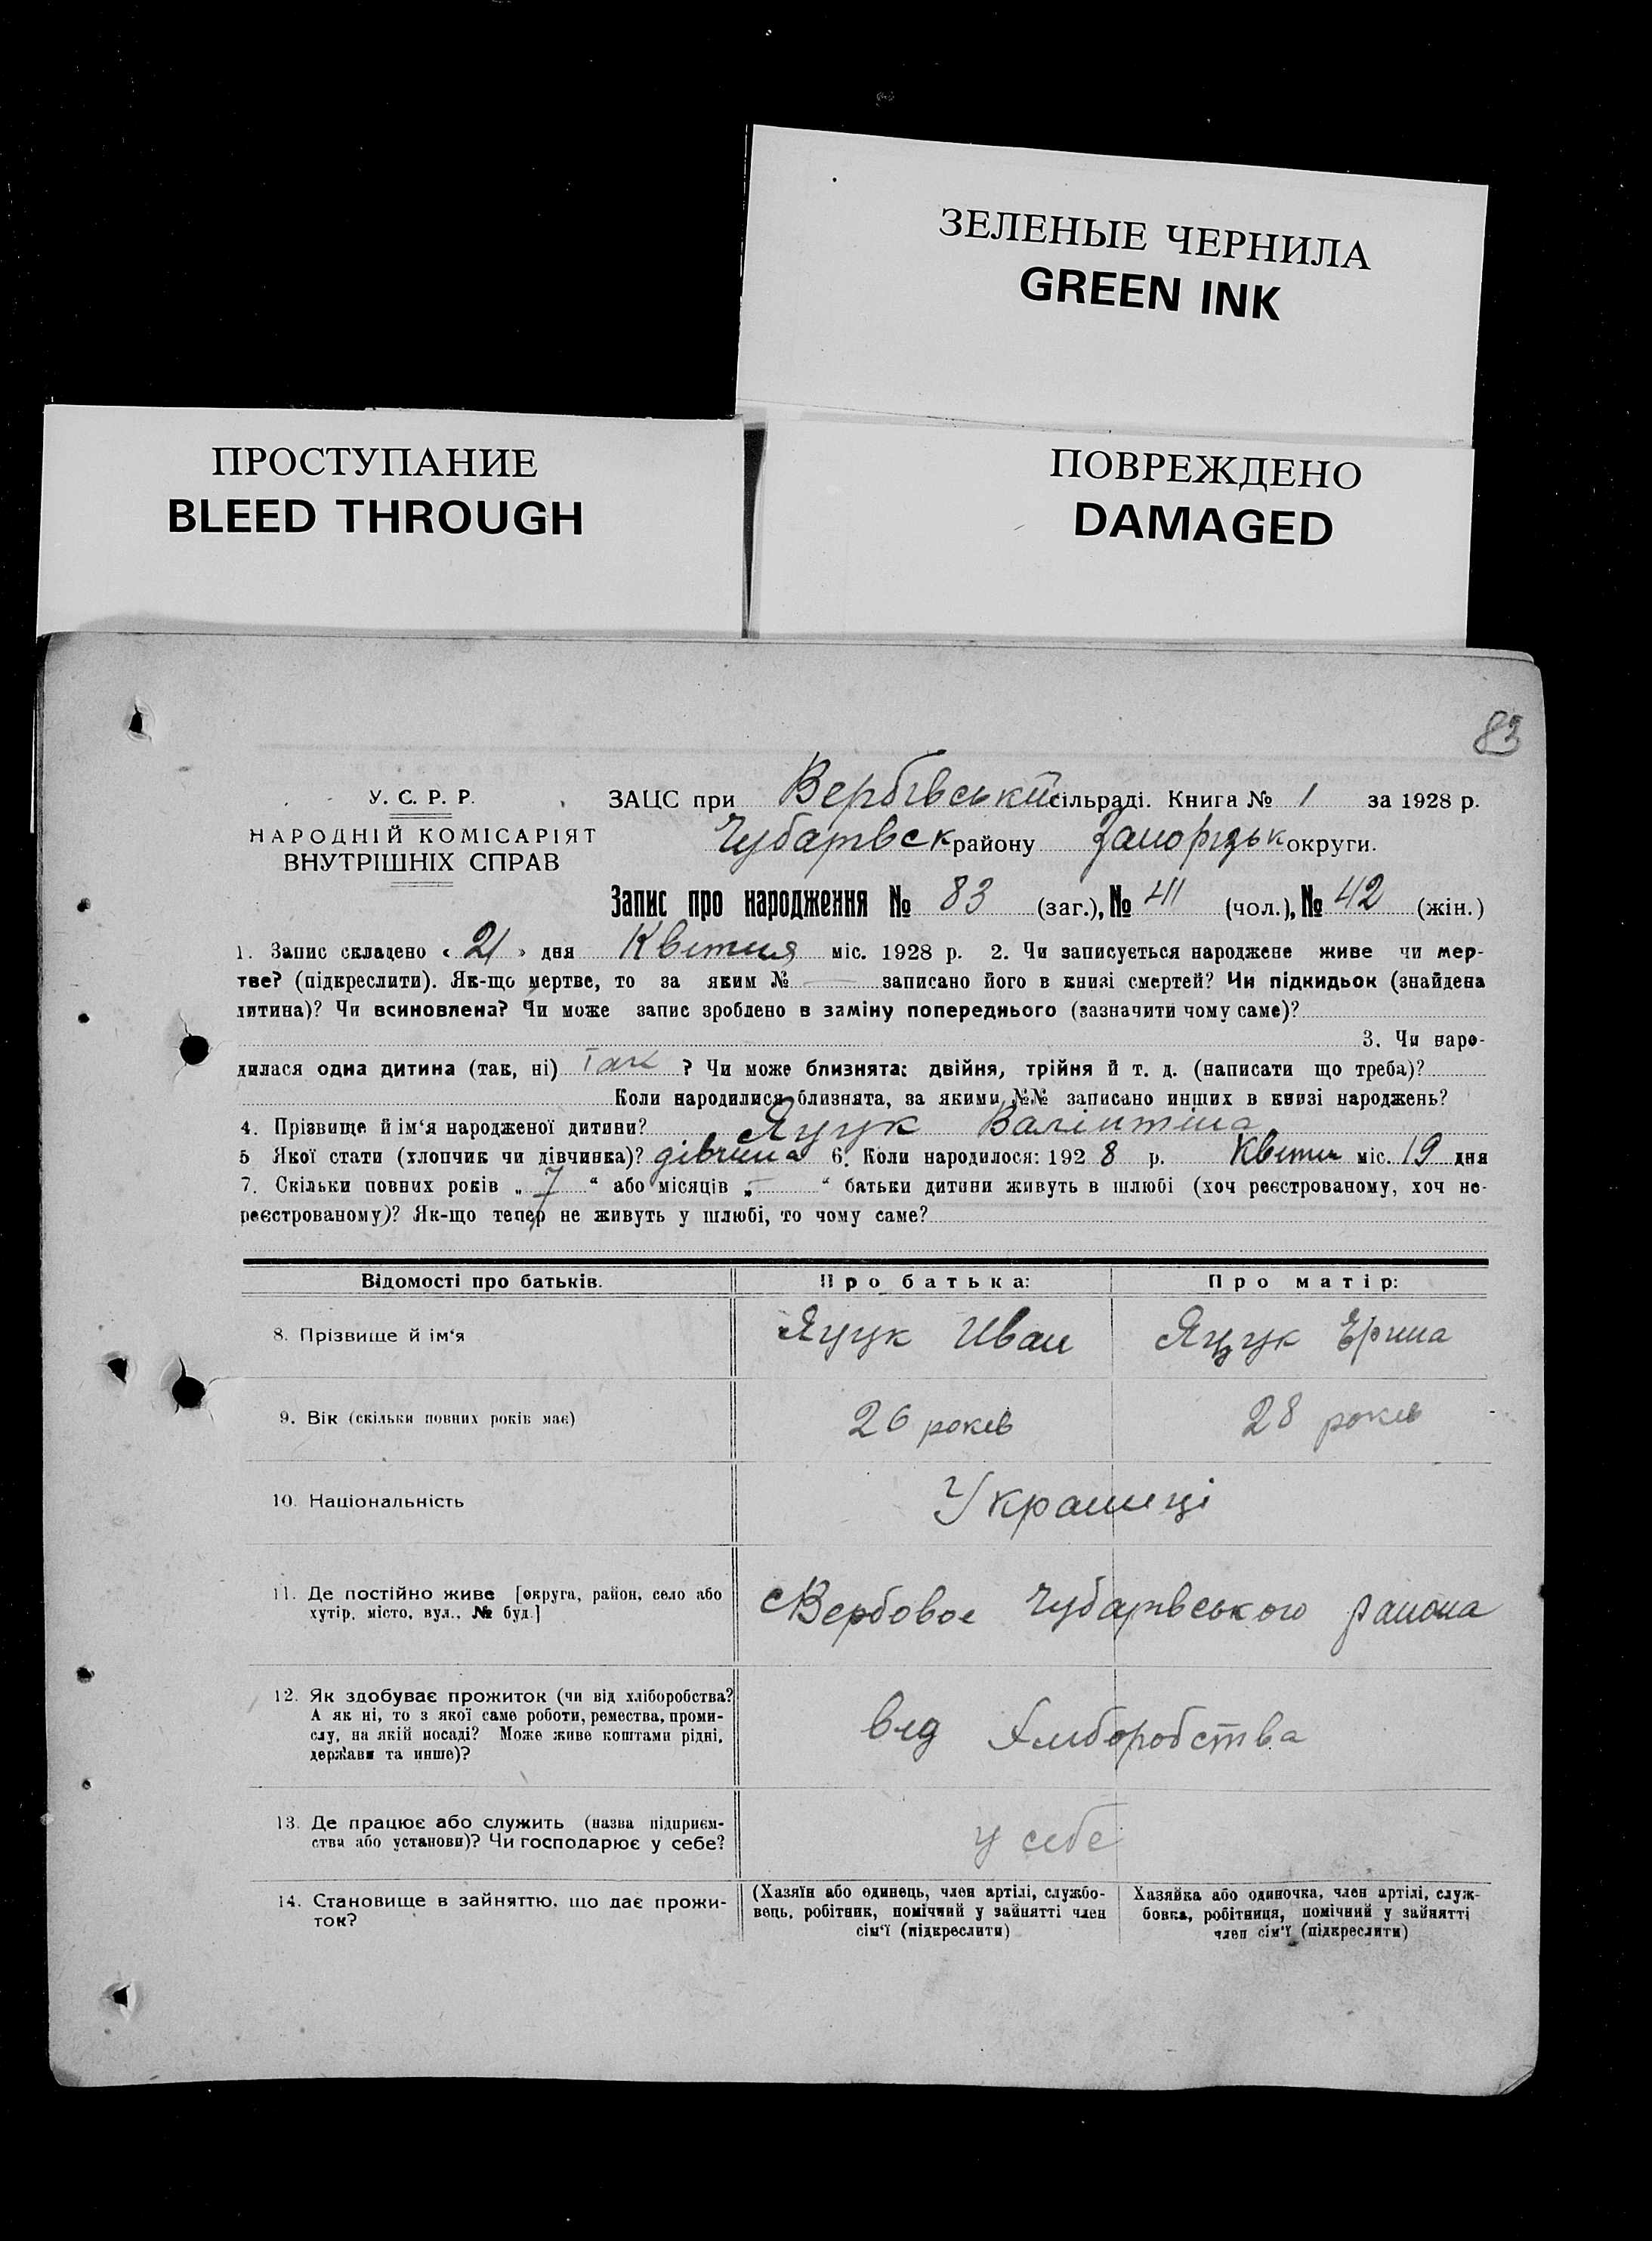 ЗЕЛЕНЫЕ ЧЕРНИЛА
GREEN INK
ПРОСТУПАНИЕ
BLEED THROUGH
ПОВРЕЖДЕНО
DAMAGED
83
У. С. Р. Р.
НАРОДНІЙ КОМІСАРІЯТ
ВНУТРІШНІХ СПРАВ
ЗАЦС при Вербівській сільраді. Книга № 1 за 1928 р.
Чубарівськ району Запорізьк округи.
Запис про народження № 83 (заг.), № 41 (чол.), № 42 (жін.)
1. Запис складено « 21 » дня Квітня міс. 1928 р. 2. Чи записується народжене живе чи мер-
тве? (підкреслити). Як-що мертве, то за яким № — записано його в книзі смертей? Чи підкидьок (знайдена
дитина)? Чи всиновлена? Чи може запис зроблено в заміну попереднього (зазначити чому саме)?
3. Чи наро-
дилася одна дитина (так, ні) Так ? Чи може близнята: двійня, трійня й т. д. (написати що треба)?
Коли народилися близнята, за якими №№ записано инших в книзі народжень?
4. Прізвище й ім‘я народженої дитини? Яцук Валінтіна
5 Якої стати (хлопчик чи дівчинка)? дівчина 6. Коли народилося: 192 8 р. Квітн міс. 19 дня
7. Скільки повних років „ 7 “ або місяців „ — “ батьки дитини живуть в шлюбі (хоч реєстрованому, хоч не-
реєстрованому)? Як-що тепер не живуть у шлюбі, то чому саме?
Відомості про батьків. Про батька: Про матір:
8. Прізвище й ім‘я Яцук Иван Яцук Ерина
9. Вік (скільки повних років має) 26 років 28 років
10. Національність Украинці
11. Де постійно живе [округа, район, село або
хутір, місто, вул., № буд.]
с Вербовое Чубарівського района
12. Як здобуває прожиток (чи від хліборобства?
А як ні, то з якої саме роботи, ремества, проми-
слу, на якій посаді? Може живе коштами рідні,
держави та инше)?
від Хліборобства
13. Де працює або служить (назва підприєм-
ства або установи)? Чи господарює у себе?
у себе
14. Становище в зайняттю, що дає прожи-
ток?
(Хазяїн або одинець, член артілі, службо-
вець, робітник, помічний у зайнятті член
сім‘ї (підкреслити)
Хазяйка або одиночка, член артілі, служ-
бовка, робітниця, помічний у зайнятті
член сім‘ї (підкреслити)